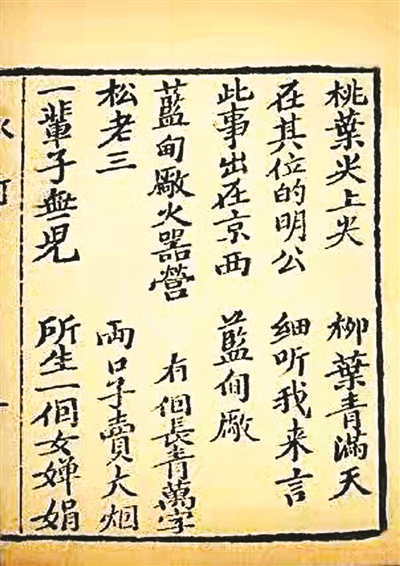 桃葉尖上尖 柳葉青滿天
在其位的明公 細听我来言
此事出在京西 藍甸廠
藍甸廠火器營 有個長青萬字
松老三 兩口子賣大烟
一輩子無児 所生一個女嬋娟